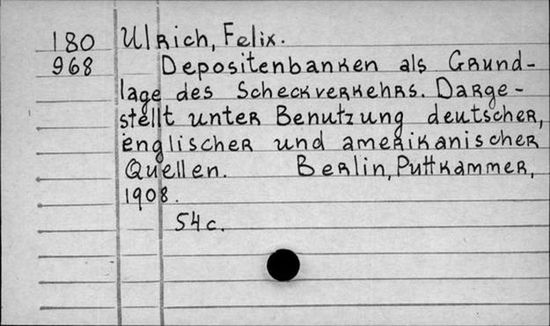 180 Ulrich, Felix.
968 Depositenbanken als Grund-
lage des Scheckverkehrs. Darge-
stellt unter Benutzung deutscher,
englischer und amerikanischer
Quellen. Berlin, Puttkammer,
1908.
54 c.